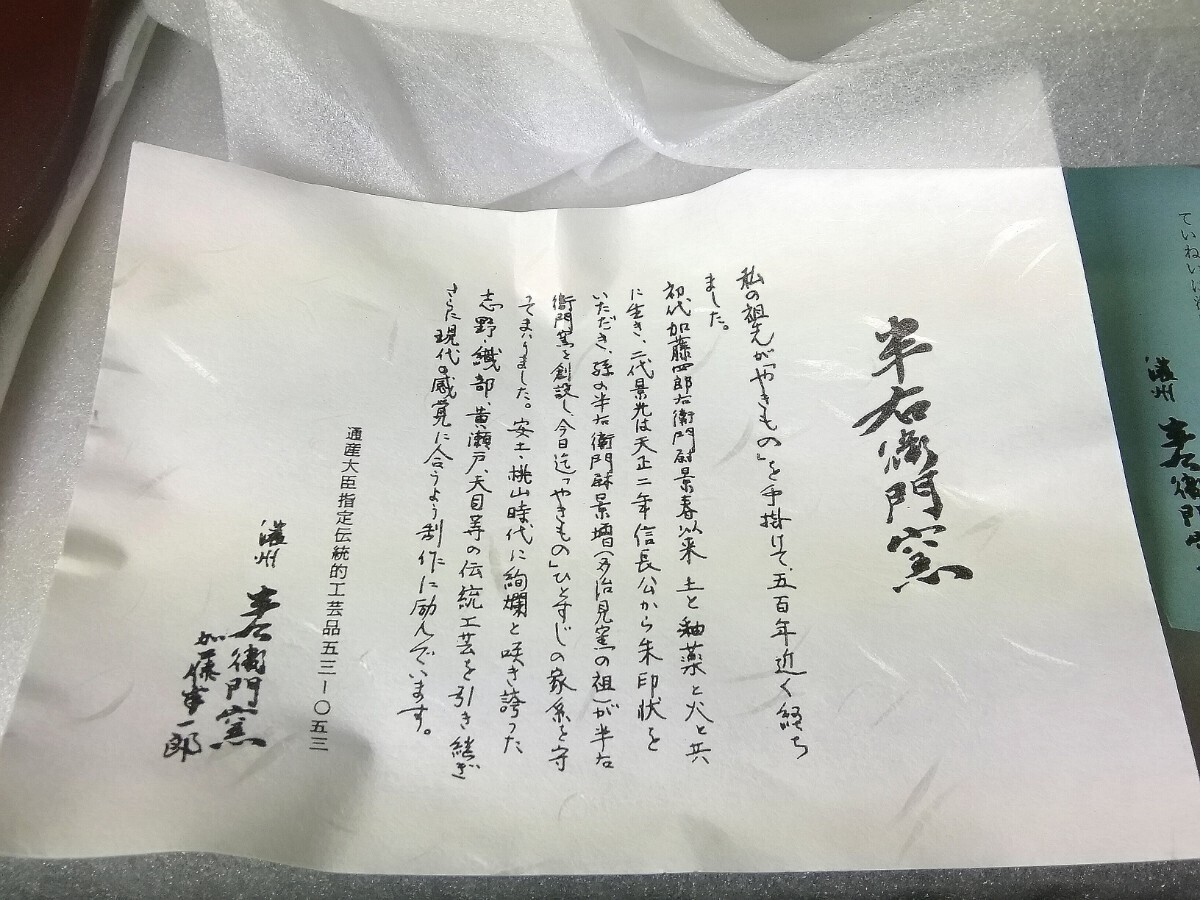 ていねいに
濃州
半右衛門窯
半右衛門窯
私の祖先が「やきもの」を手掛けて、五百年近く経ち
ました。
初代加藤四郎右衛門尉景春以来 土と釉薬と火と共
に生き、二代景光は天正二年信長公から朱印状を
いただき、孫の半右衛門尉景増(多治見窯の祖)が半右
衛門窯を創設し、今日迄「やきもの」ひとすじの家系を守
ってまいりました。安土・桃山時代に絢爛と咲き誇った
志野、織部、黄瀬戸、天目等の伝統工芸を引き継ぎ
さらに現代の感覚に合うよう制作に励んでいます。
通産大臣指定伝統的工芸品五三ー〇五三
濃州 半右衛門窯
加藤半一郎